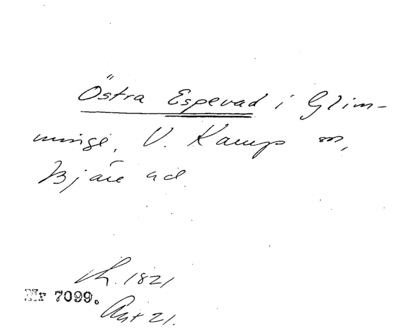 Östra Espevad i Glim-
minge, V. Karup sn,
Bjäre hd
Lh. 1821
Nr 7099.
Akt 21.